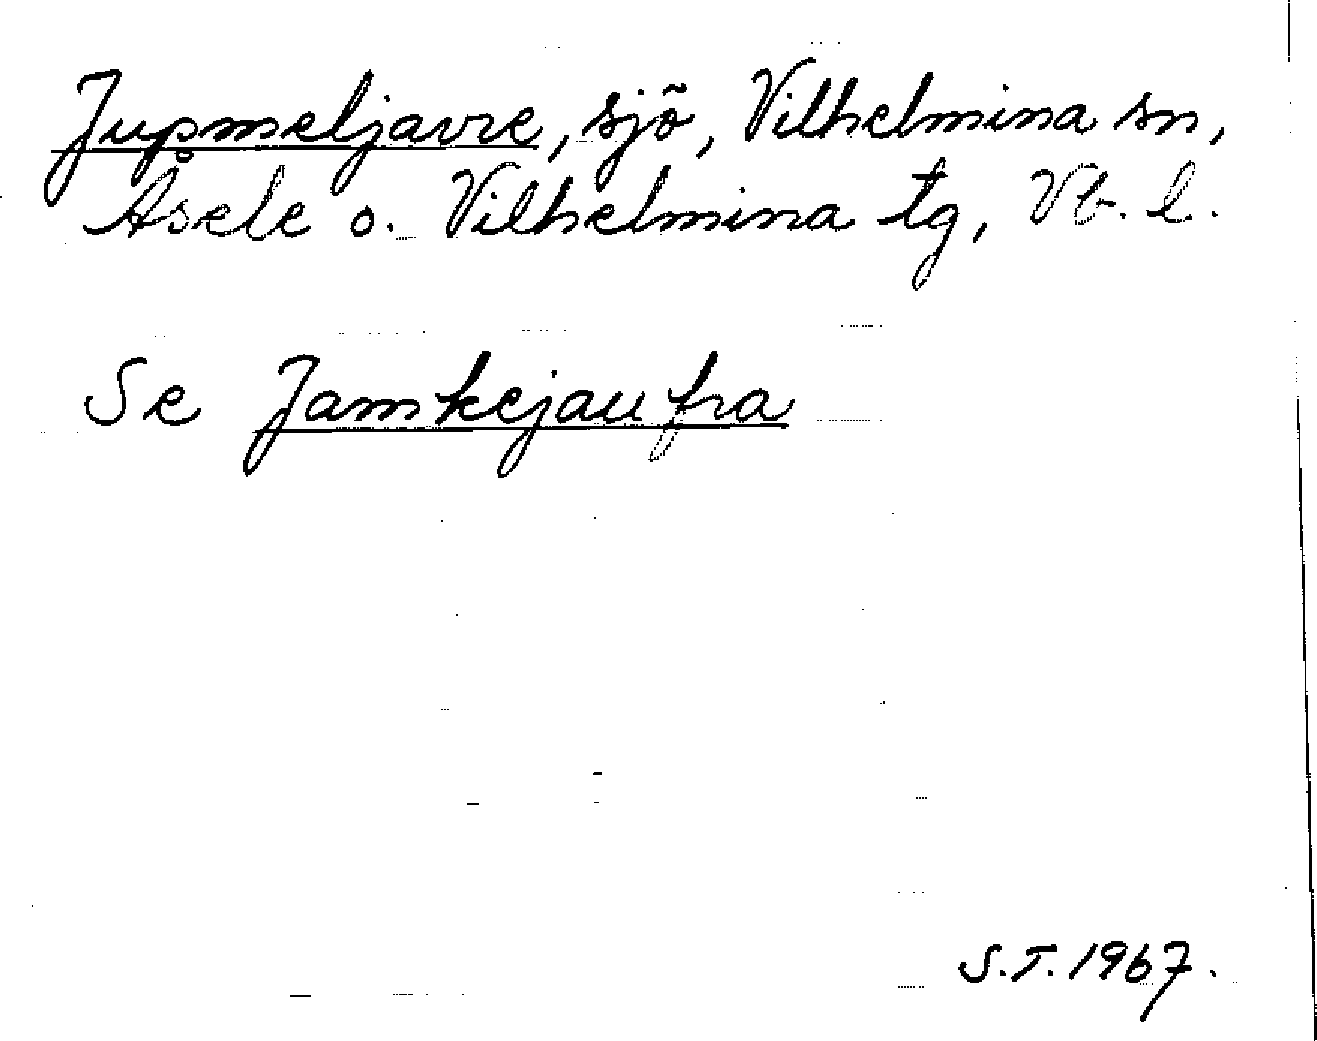 Jupmeljavre, sjö, Vilhelmina sn,
Åsele o. Vilhelmina tg, Vb. l.
Se Jamkejaufra
S.T. 1967.